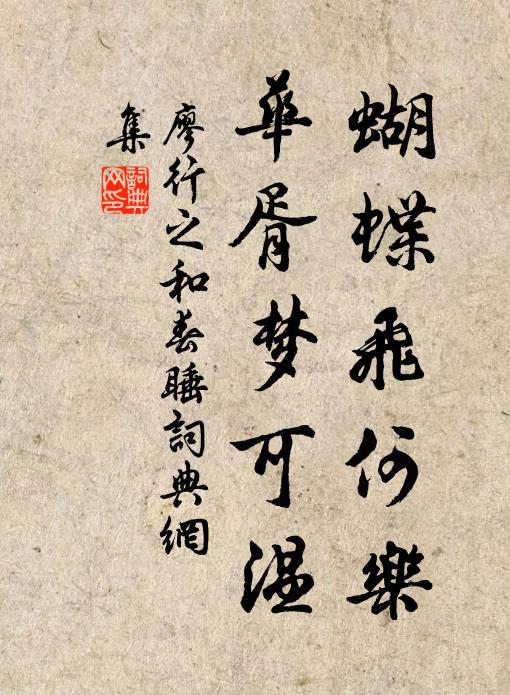 蝴蝶飛何樂
華胥梦可温
廖行之和春睡詞典網
集
詞典
网印